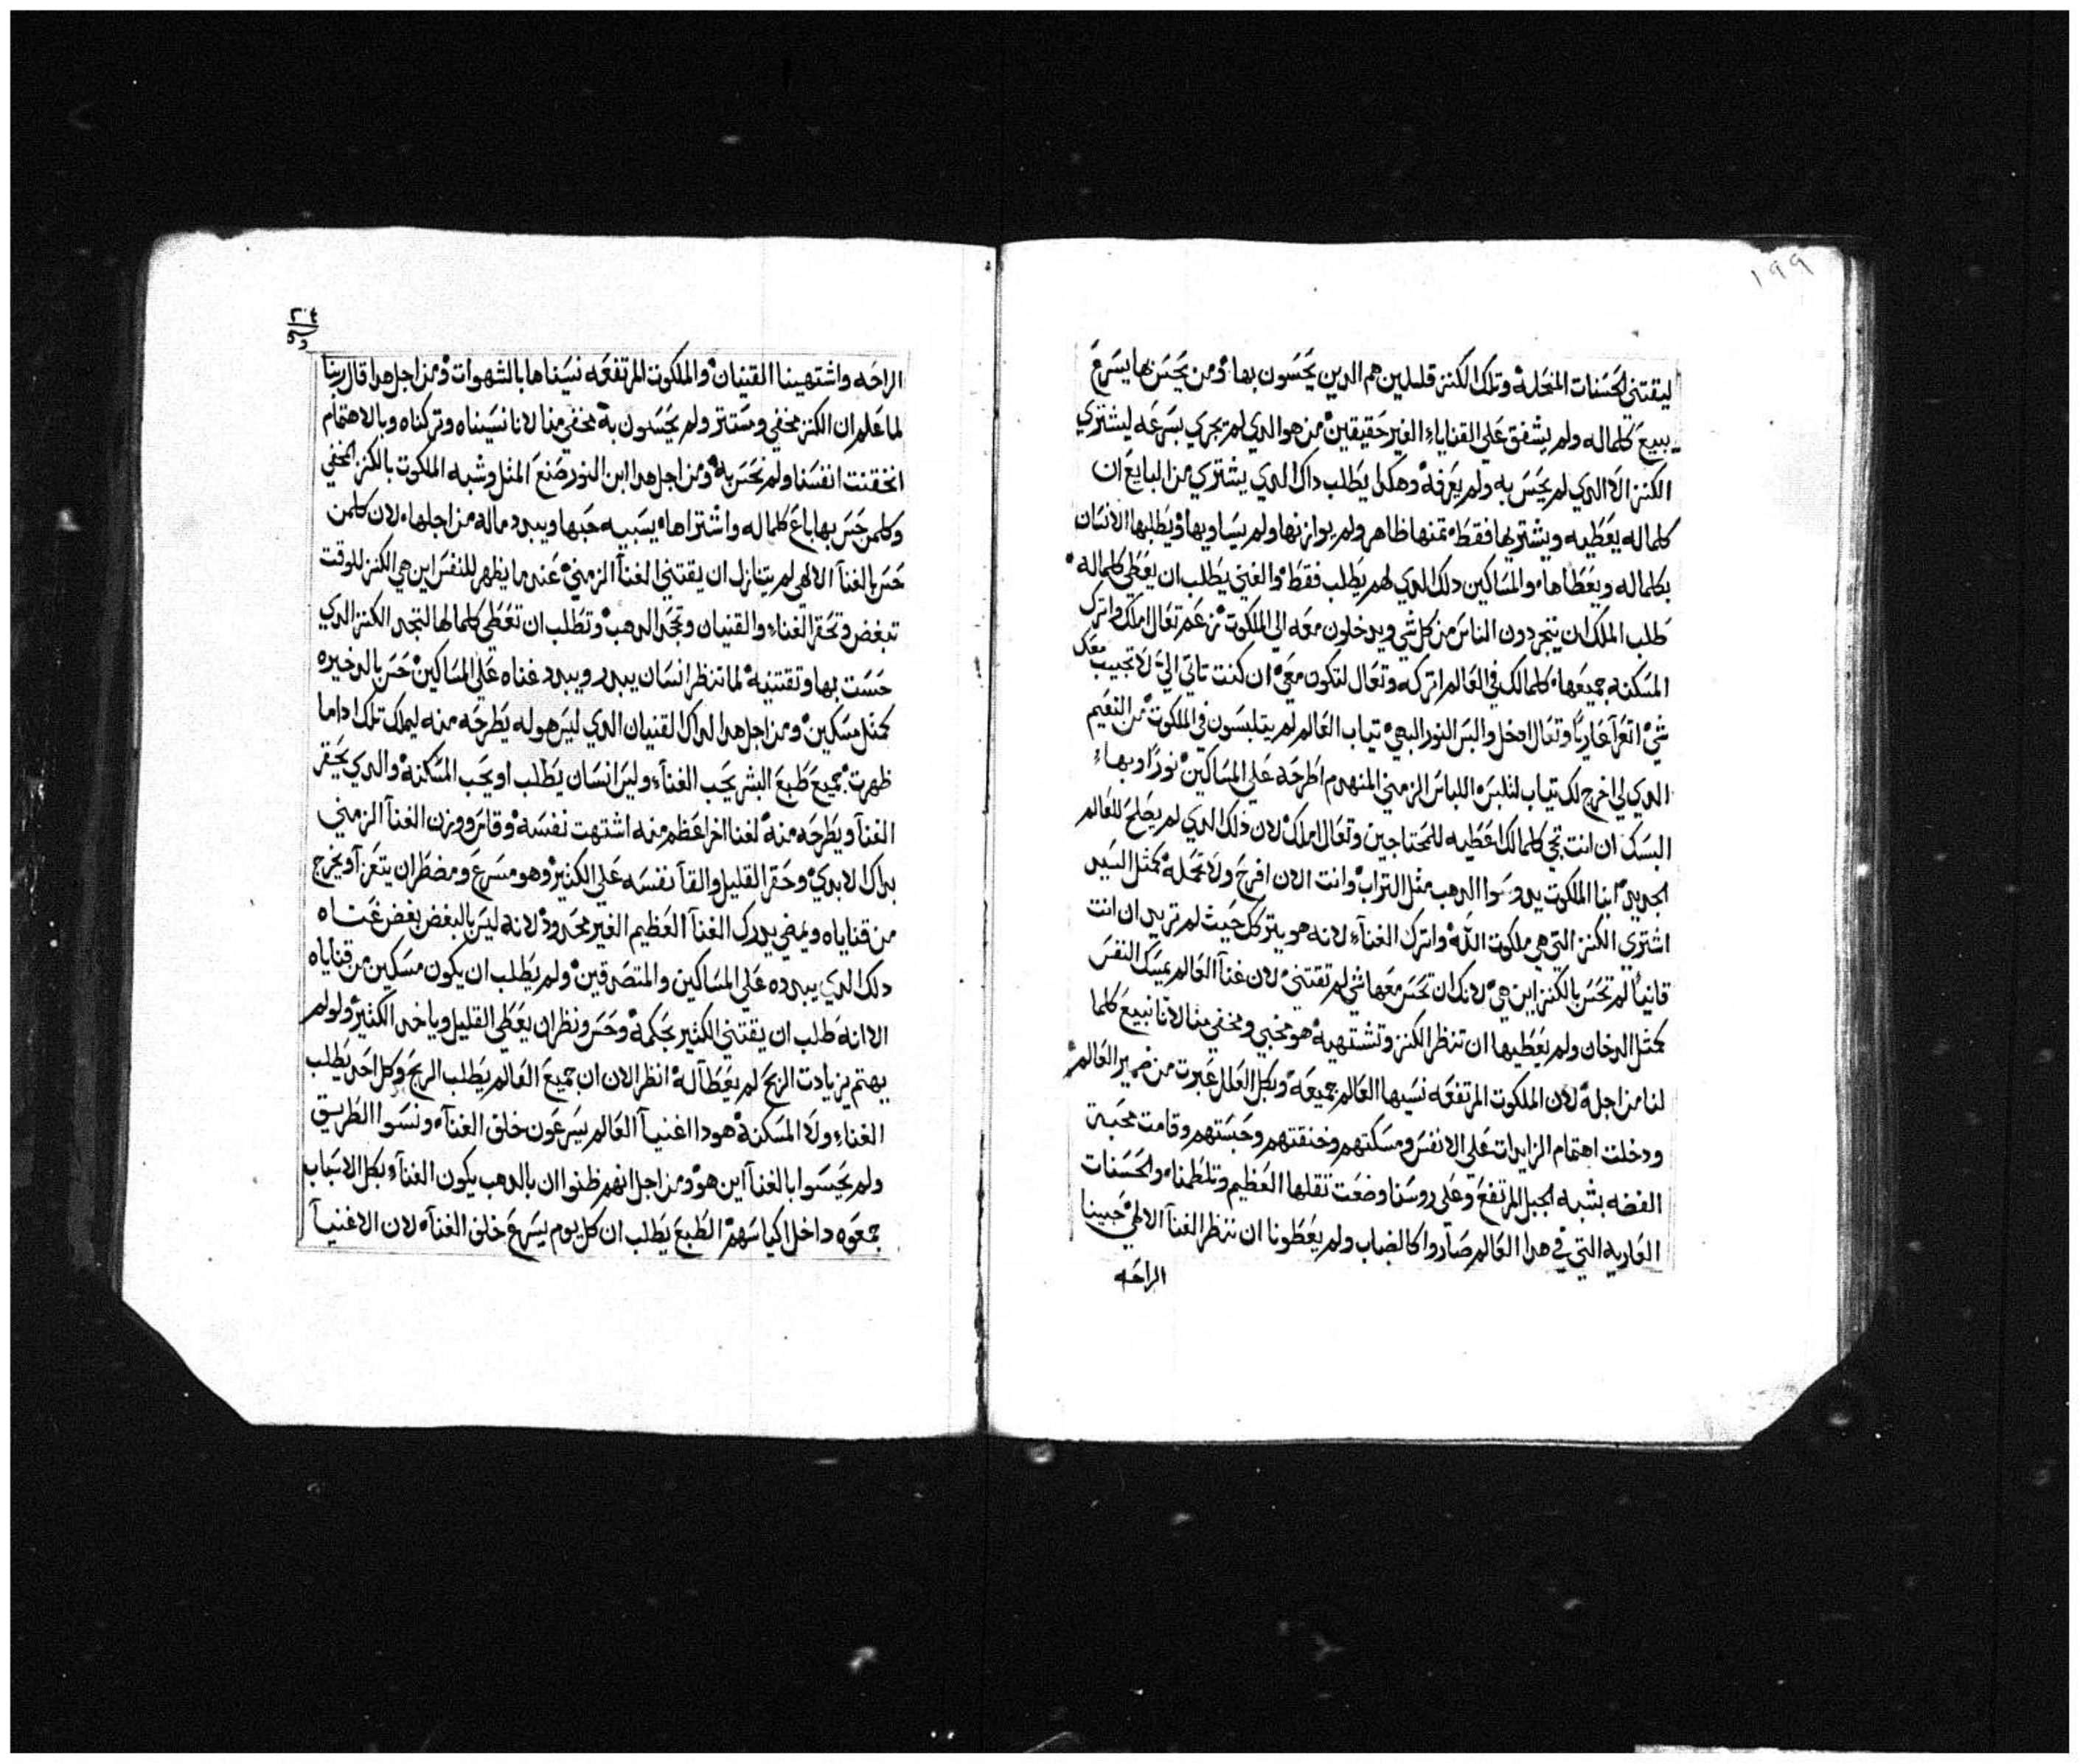 ١٩٩
ليقتني الحسنات المنحله وتلك الكنز قليلين هم الدين يحسون بها ومن يحس بها يسرع
يبيع كلما له ولم يشفق علي القنايا الغير حقيقين من هو الدي لم يجري بسرعه ليشتري
الكنز الا الدي لم يحس به ولم يعرفه وهكدا يطلب داك الدي يشتري من البايع ان
كلما له يعطيه ويشتريها فقط تمنها ظاهر ولم يوازنها ولم يساويها ويطلبها الانسان
بكلما له ويعطاها والمساكين دلك الدي لهم يطلب فقط والغني يطلب ان يعطي كلما له
طلب الملك ان يتجردون الناس من كل شي ويدخلون معه الي الملكوت زعم تعال املك واترك
المسكنه جميعها كلما لك في العالم اتركه وتعال لتكون معي ان كنت تاتي الي لا تجيب معك
شي اتعرا عاريا وتعال ادخل والبس النور البهي تياب العالم لم يتلبسون في الملكوت من النعيم
الدي لي اخرج لك تياب لتلبس اللباس الزمني المنهدم اطرحه علي المساكين نورا وبهاء
البسك ان انت تجي كلما لك اعطيه للمحتاجين وتعال املك لان دلك الدي لم يصلح للعالم
الجديد ابنا الملكوت يدوسوا الدهب متل التراب وانت الان افرح ولا تحمله كمتل السيد
اشتري الكنز التي هي ملكوت الله واترك الغنآء لانه هو يتركك حيث لم تريد ان انت
قانيا لم تحس بالكنز اين هي لانك ان تحس معها شي لم تقتني لان غنآ العالم يمسك النفس
كمتل الدخان ولم يعطيها ان تنظر الكنز وتشتهيه هو مخبي ومخفي منا لانا نبيع كلما
لنا من اجله لان الملكوت المرتفعه نسيها العالم جميعه وبكل العلل عبرت من ضمير العالم
ودخلت اهتمام الزايدات علي الانفس ومسكتهم وخنقتهم وحبستهم وقامت محبة
الفضه بشبه الجبل المرتفع وعلي روسنا وضعت تقلها العظيم وتلطمناه والحسنات
العاريه التي في هدا العالم صاروا كالضباب ولم يعطونا ان ننظر الغنآ الالهي حبينا
الراحه
٢٠٤
الراحه واشتهينا القنيان والملكوت المرتفعه نسيناها بالشهوات ومن اجل هدا قال ربنا
لما علم ان الكنز مخفي ومستتر ولم يحسون به مخفي منا لانا نسيناه وتركناه وبالاهتمام
انخنقت انفسنا ولم نحس به ومن اجل هدا ابن النور صنع المتل وشبه الملكوت بالكنز المخفي
وكلمن حس بها باع كلما له واشتراها يسبيه حبها ويبدد ماله من اجلها لان كلمن
حس بالغنآ الالهي لم يتنازل ان يقتني الغنآ الزمني عندما يظهر للنفس اين هي الكنز للوقت
تبغض وتحقر الغناء والقنيان وتجحد الدهب وتطلب ان تعطي كلما لها لتجد الكنز الدي
حست بها وتقتنيه لما تنظر انسان يبدد ويبدد غناه علي المساكين حس بالدخيره
كمتل مسكين ومن اجل هدا لداك القنيان الدي ليس هو له يطرحه منه ليملك تلك اداما
ظهرت جميع طبع البشر يحب الغنآء وليس انسان يطلب او يحب المسكنه والدي يحقر
الغنآ ويطرحه منه لغنا اخر اعظم منه اشتهت نفسه وقايس ووزن الغنآ الزمني
بداك الابدي وحقر القليل والقا نفسه علي الكتير وهو مسرع ومضطر ان يتعرآ ويخرج
من قناياه ويمضي يدرك الغنآ العظيم الغير محدود لانه ليس بالبغض بغض غناه
دلك الدي يبدده علي المساكين والمتصدقين ولم يطلب ان يكون مسكين من قناياه
الا انه طلب ان يقتني الكتير بحكمه وحس ونظر ان يعطي القليل وياخد الكتير ولو لم
يهتم بزيادت الربح لم يعطآ له انظر الان ان جميع العالم يطلب الربح وكل احد يطلب
الغناء ولا المسكنه هودا اغنيآ العالم يسرعون خلف الغنآء ونسوا الطريق
ولم يحسوا بالغنآ اين هو ومن اجل انهم ظنوا ان بالدهب يكون الغنآء بكل الاسباب
جمعوه داخل اكياسهم الطبع يطلب ان كل يوم يسرع خلف الغنآء لان الاغنيآ